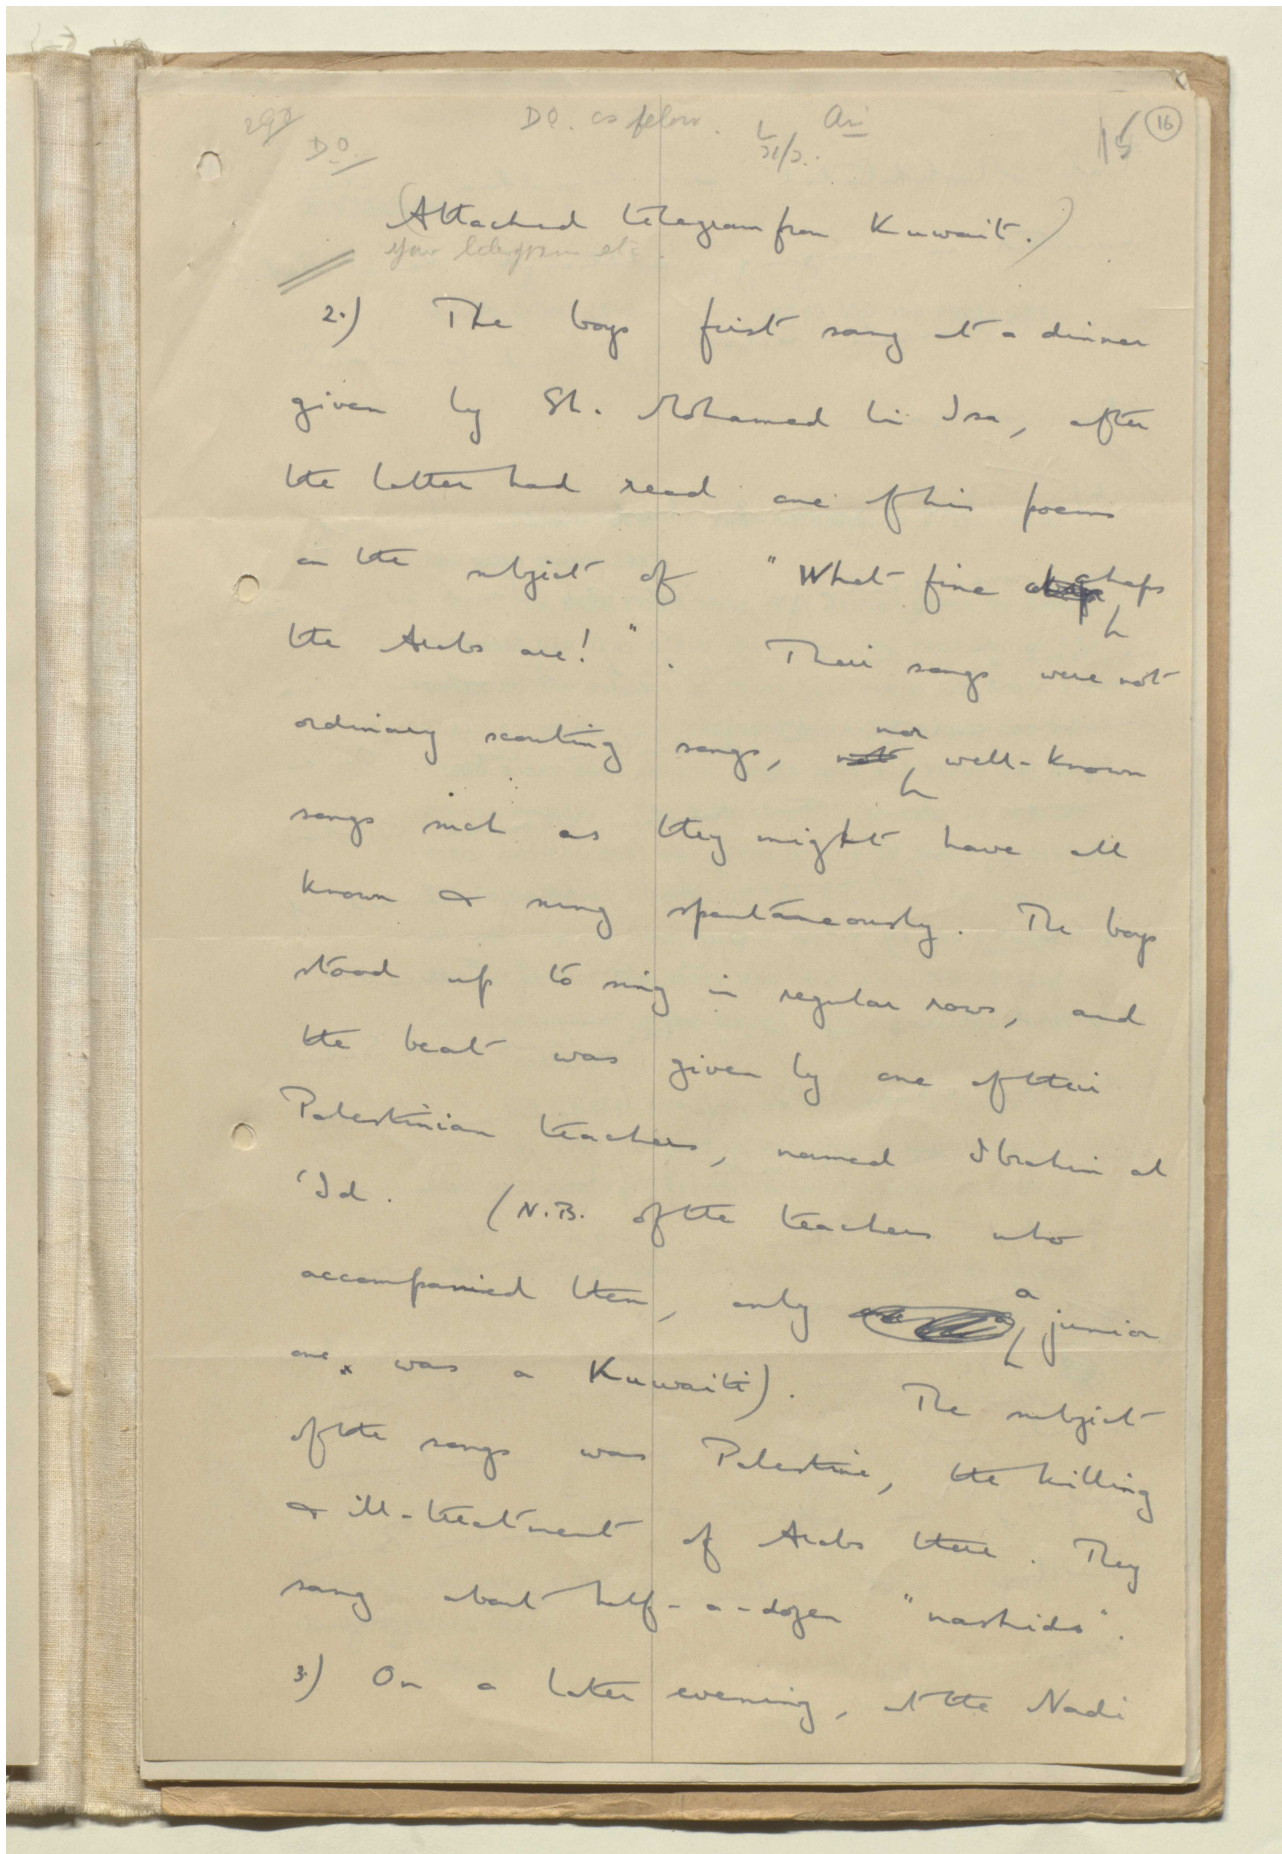 D.O. as follow. 15 16
D.O.
(Attached telegram from Kuwait.)
Your telegram etc.
2.) The boys first sang at a dinner
given by Sh. Mohamed bin Isa, after
the latter had read one of his poems
on the subject of "What fine chaps
the Arabs are!". Their songs were not
ordinary scouting songs, nor well-known
songs such as they might have all
known & sung spontaneously. The boys
stood up to sing in regular rows, and
the beat was given by one of their
Palestinian teachers, named Ibrahim al
'Id. (N.B. of the teachers who
accompanied them, only a junior
one x was a Kuwaiti). The subject
of the songs was Palestine, the killing
& ill-treatment of Arabs there. They
sang about half-a-dozen "nashids".
3.) On a later evening, at the Nadi